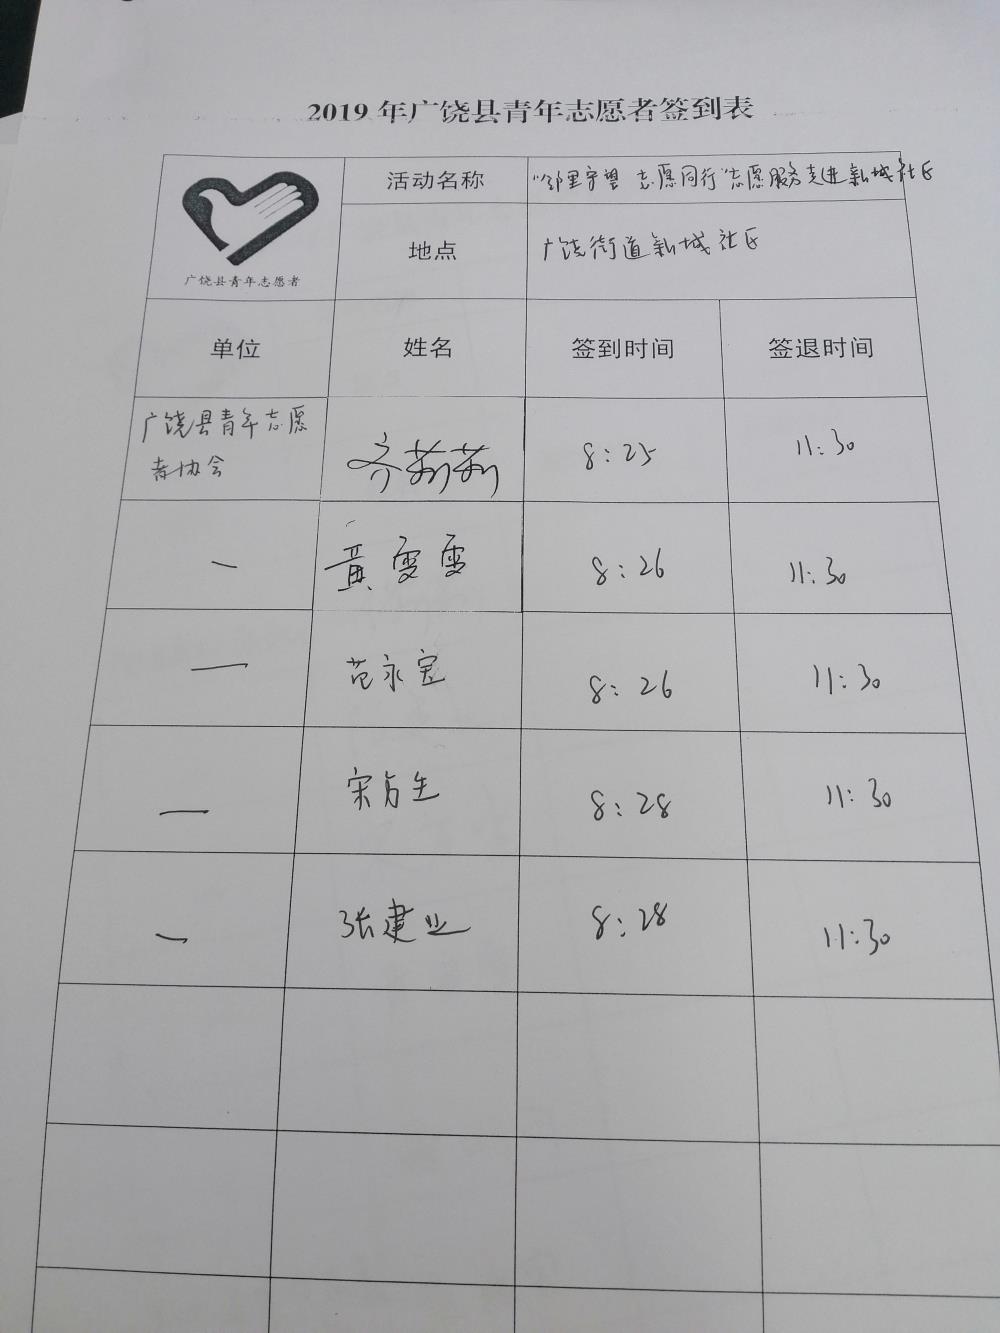 2019年广饶县青年志愿者签到表
广饶县青年志愿者
活动名称
“邻里守望 志愿同行”志愿服务走进新城社区
地点
广饶街道新城社区
单位 姓名 签到时间 签退时间
广饶县青年志愿
者协会
齐莉莉 8:25 11:30
一 黄雯雯 8:26 11:30
一 范永宽 8:26 11:30
一 宋方生 8:28 11:30
一 张建业 8:28 11:30